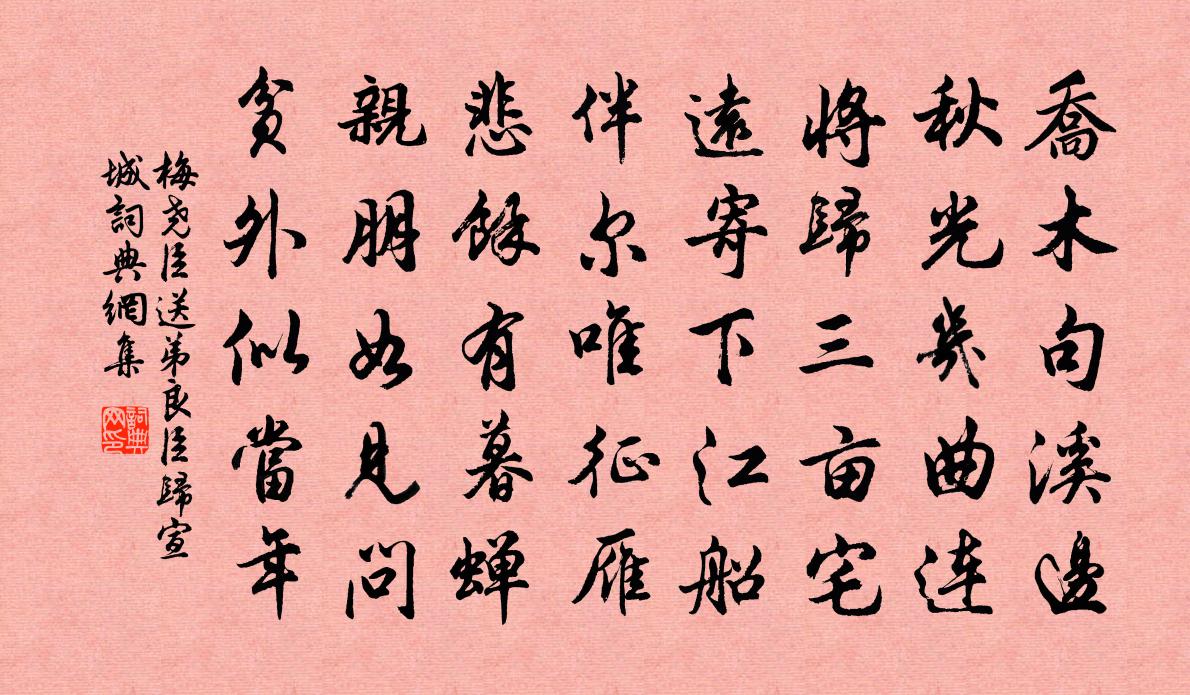 喬木句溪邊
秋光幾曲連
將歸三亩宅
遠寄下江船
伴尔唯征雁
悲餘有暮蝉
親朋如見問
貧外似當年
梅尧臣送弟良臣歸宣
城詞典網集
詞典
网印